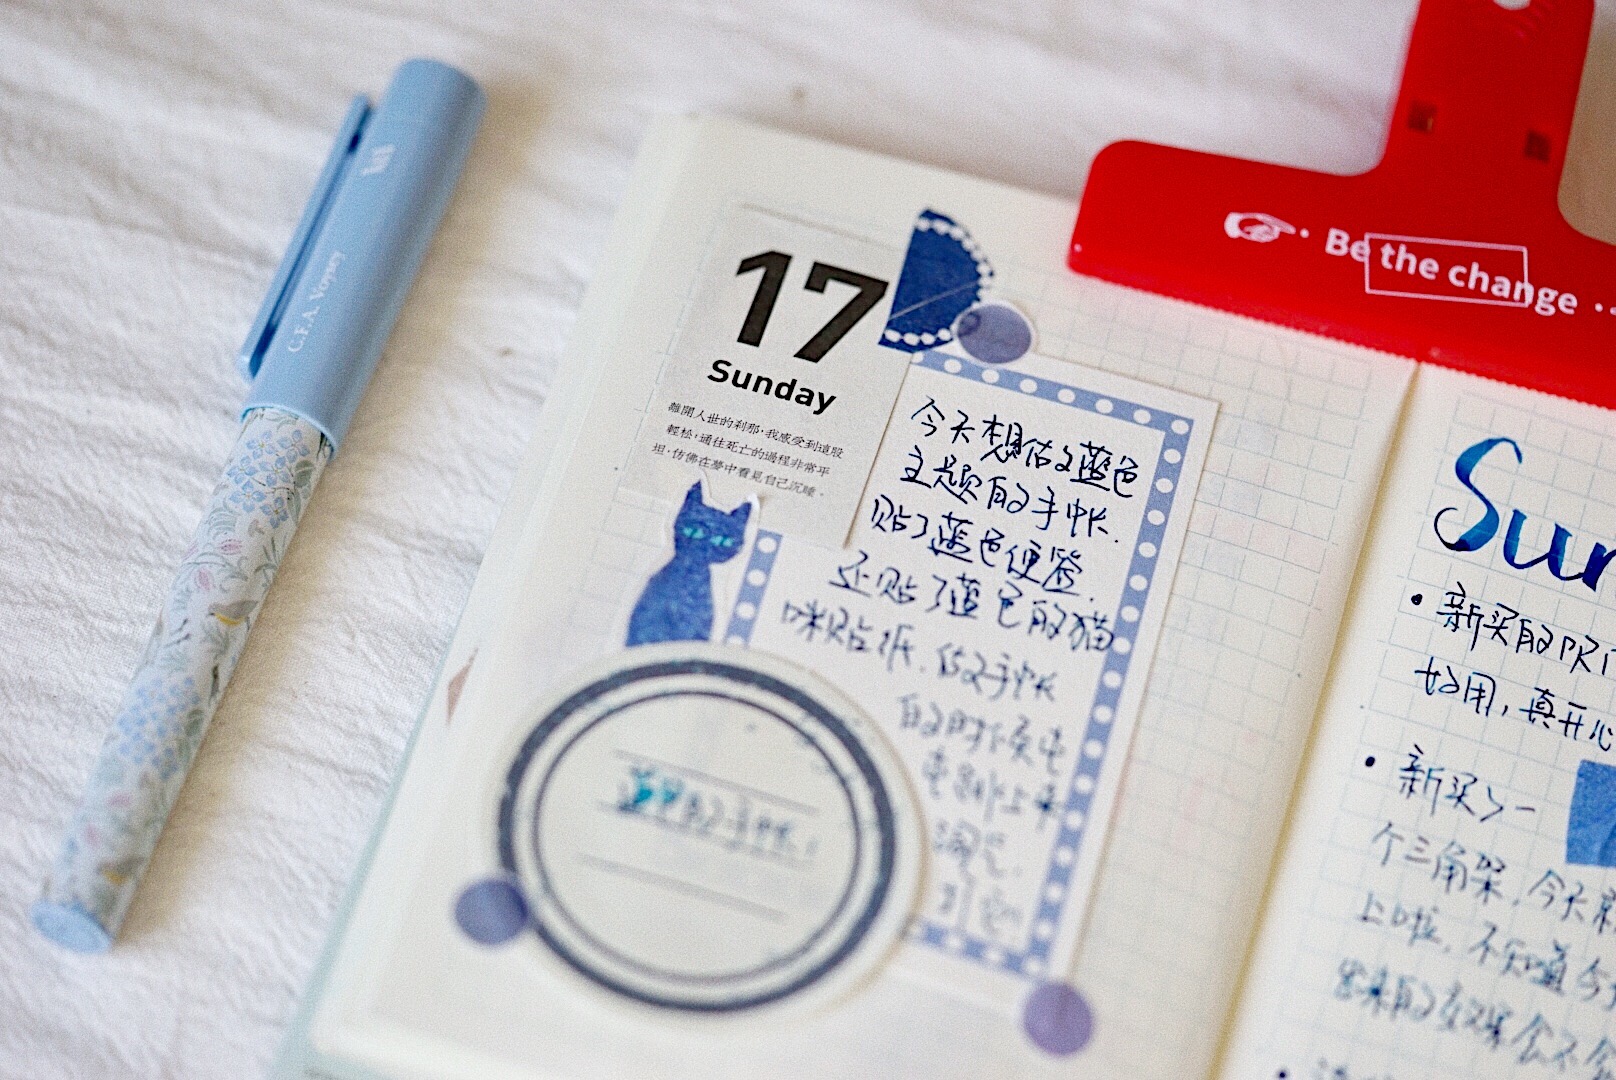 C.F.A. Voysey
Be the change
17
Sunday
離開人世的刹那，我感受到這股
輕松，通往死亡的過程非常平
坦，仿佛在夢中看見自己沉睡。
今天想做个蓝色
主题的手帐.
贴了蓝色便签.
还贴了蓝色的猫
咪贴纸. 做手帐
的时候
蓝色的手帐！
Sun
新买的
好用，真开心
新买了一
个三角架，今天
上啦，不知道今
出来的效果会不会